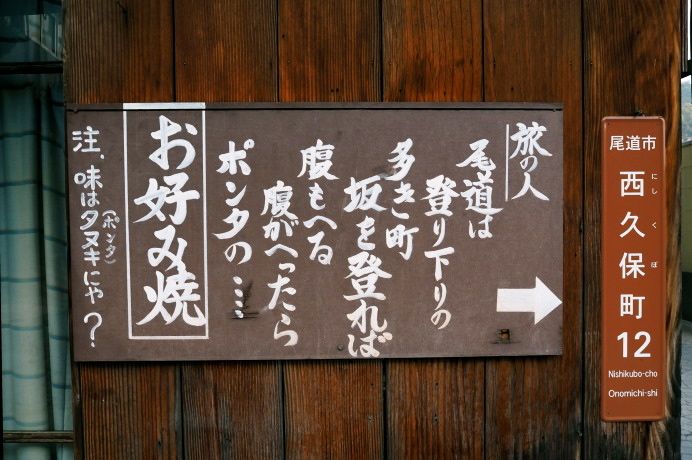 旅の人
尾道は
登り下りの
多き町
坂を登れば
腹もへる
腹がへったら
ポンタの…
お好み焼
注、味はタヌキにゃ?
(ポンタ)
尾道市
西久保町
にしくぼ
12
Nishikubo-cho
Onomichi-shi